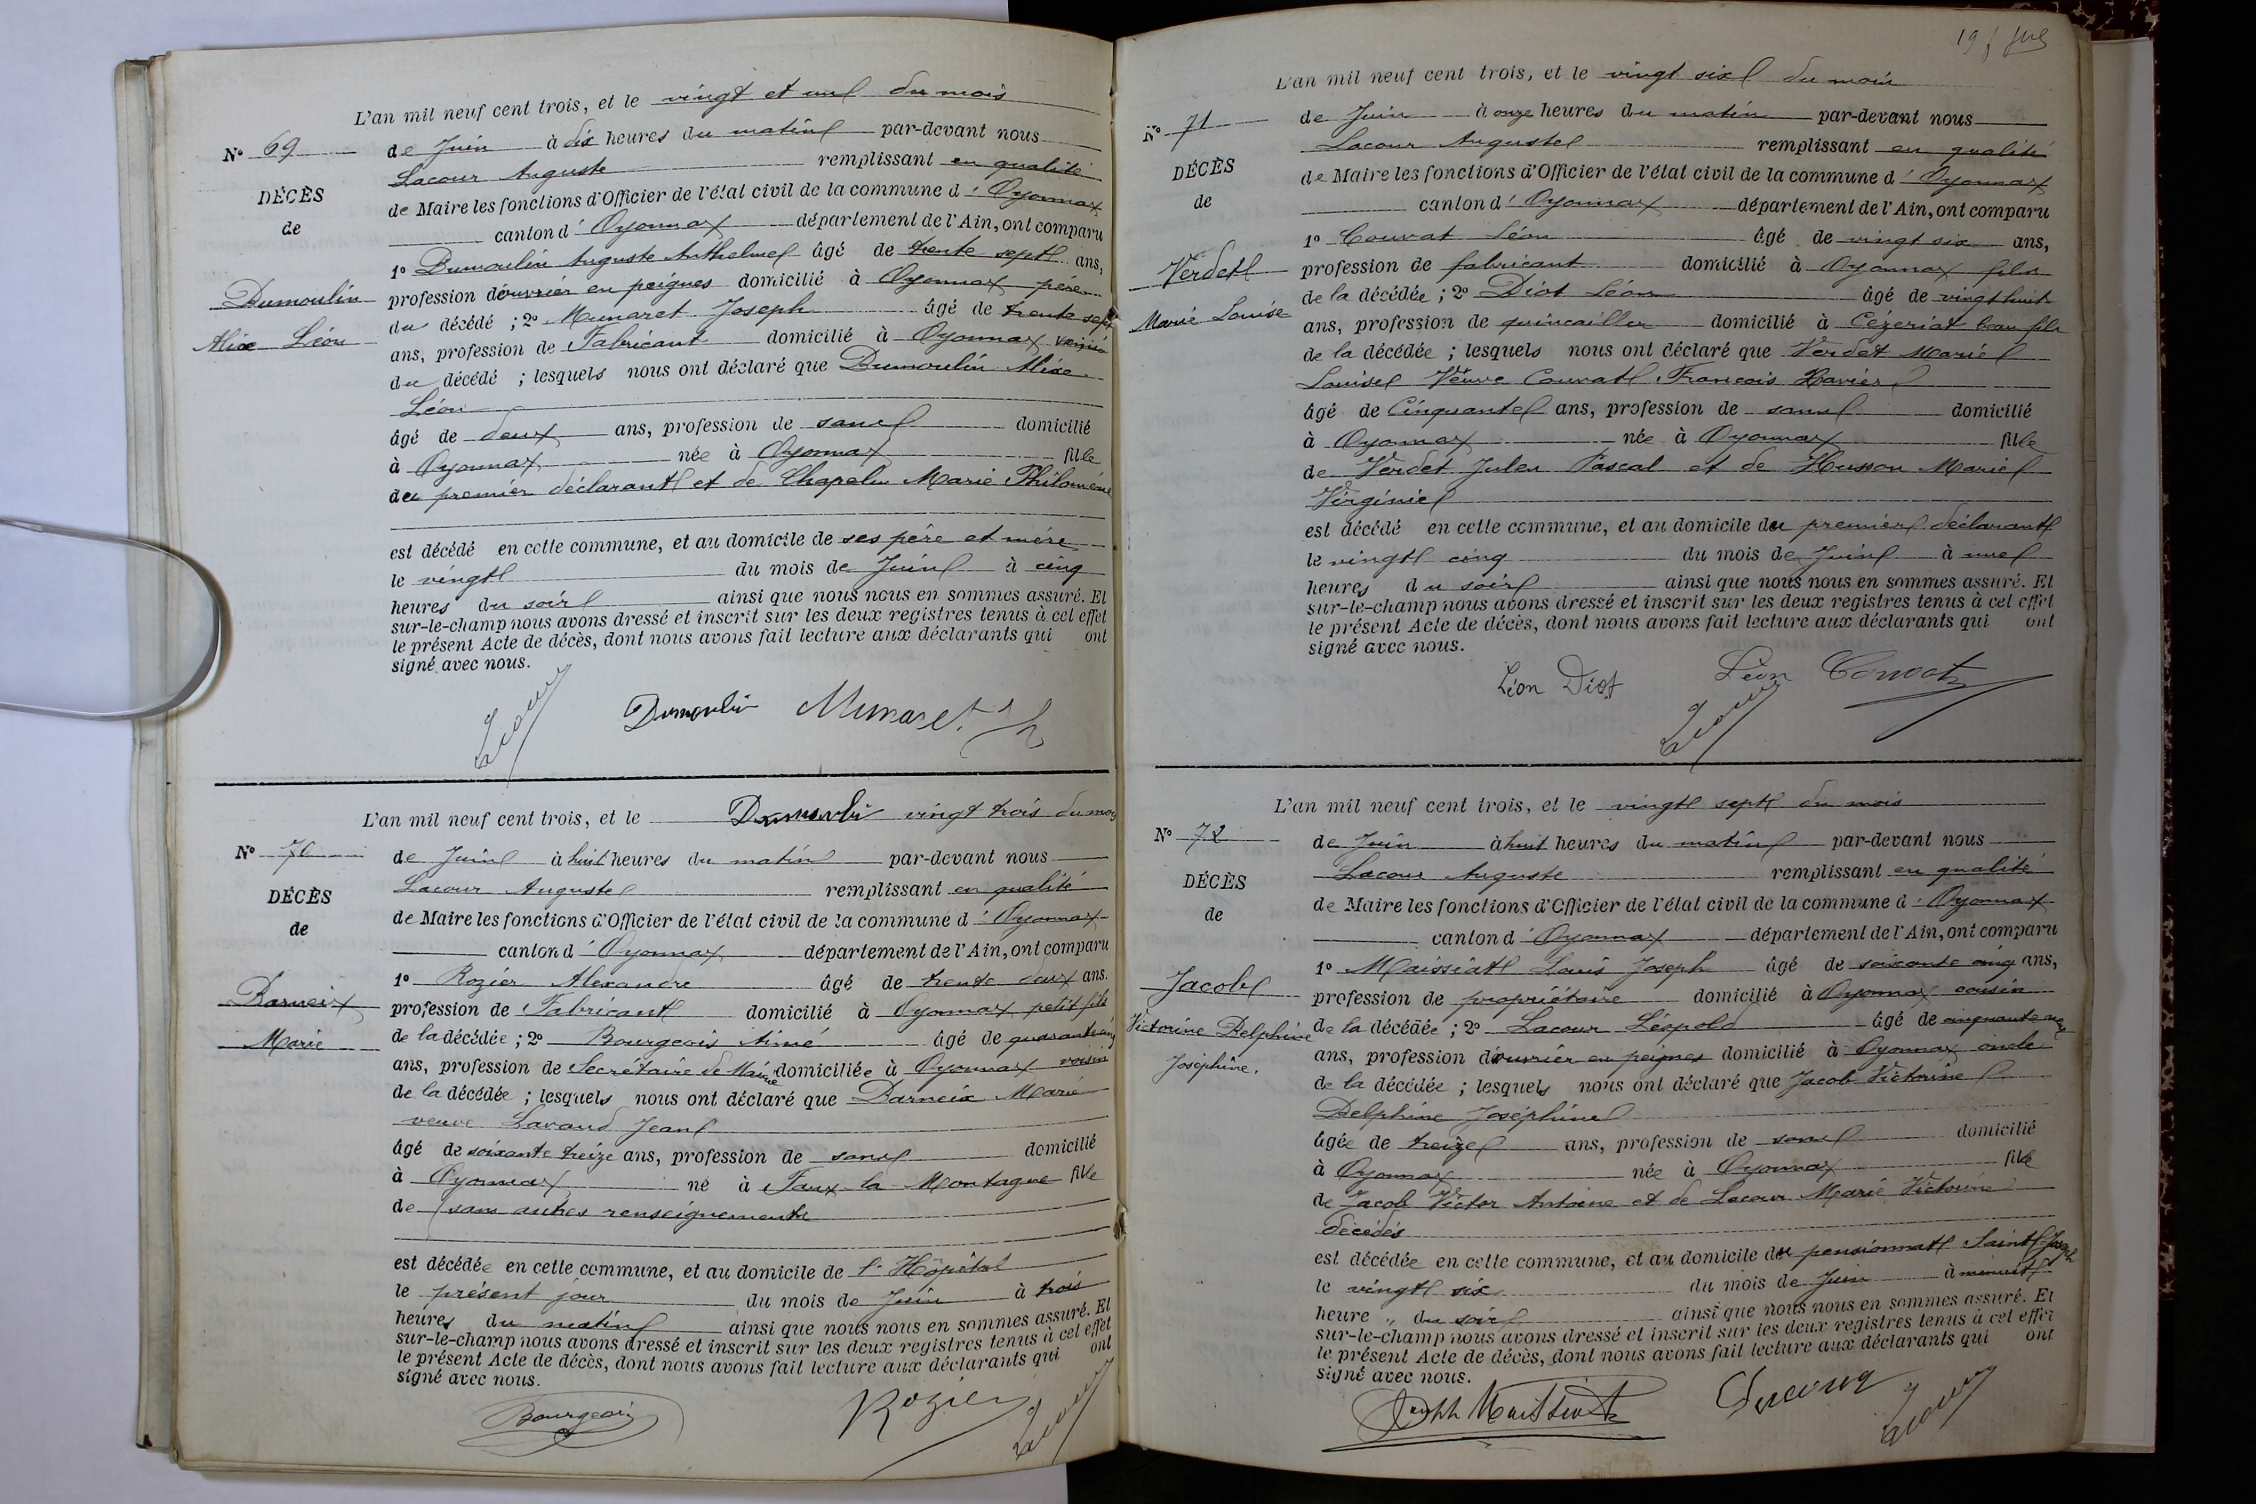 L'an mil neuf cent trois, et le vingt et un du mois
N° 69
de Juin à dix heures du matin par-devant nous
Lacour Auguste remplissant en qualité
DÉCÈS
de Maire les fonctions d'Officier de l'état civil de la commune d'Oyonnax
de
canton d'Oyonnax département de l'Ain, ont comparu
1° Dumoulin Auguste Anthelme âgé de trente sept ans,
Dumoulin
profession d'ouvrier en peignes domicilié à Oyonnax père
du décédé ; 2° Munaret Joseph âgé de trente sept
Alix Léon
ans, profession de Fabricant domicilié à Oyonnax voisin
du décédé ; lesquels nous ont déclaré que Dumoulin Alix
Léon
âgé de deux ans, profession de sans domicilié
à Oyonnax née à Oyonnax fils
du premier déclarant et de Chapelu Marie Philomène
est décédé en cette commune, et au domicile de ses père et mère
le vingt du mois de Juin à cinq
heures du soir ainsi que nous nous en sommes assuré. Et
sur-le-champ nous avons dressé et inscrit sur les deux registres tenus à cet effet
le présent Acte de décès, dont nous avons fait lecture aux déclarants qui ont
signé avec nous.
Lacour Dumoulin Munaret Jh
L'an mil neuf cent trois, et le Dumoulin vingt trois du mois
N° 70
de Juin à huit heures du matin par-devant nous
Lacour Auguste remplissant en qualité
DÉCÈS
de Maire les fonctions d'Officier de l'état civil de la commune d'Oyonnax
de
canton d'Oyonnax département de l'Ain, ont comparu
1° Rozier Alexandre âgé de trente deux ans.
Darneix
profession de Fabricant domicilié à Oyonnax petit fils
Marie
de la décédée ; 2° Bourgeois Aimé âgé de quarante cinq
ans, profession de Secrétaire de Mairie domiciliée à Oyonnax voisin
de la décédée ; lesquels nous ont déclaré que Darneix Marie
veuve Lavaud Jean
âgé de soixante treize ans, profession de sans domicilié
à Oyonnax né à Faux la Montagne fille
de (sans autres renseignements
est décédée en cette commune, et au domicile de l'Hôpital
le présent jour du mois de Juin à trois
heures du matin ainsi que nous nous en sommes assuré. Et
sur-le-champ nous avons dressé et inscrit sur les deux registres tenus à cet effet
le présent Acte de décès, dont nous avons fait lecture aux déclarants qui ont
signé avec nous.
Bourgeois Rozier Lacour
19
L'an mil neuf cent trois, et le vingt six du mois
N° 71
de Juin à onze heures du matin par-devant nous
Lacour Auguste remplissant en qualité
DÉCÈS
de Maire les fonctions d'Officier de l'état civil de la commune d'Oyonnax
de
canton d'Oyonnax département de l'Ain, ont comparu
1° Couvat Léon âgé de vingt six ans,
Verdet
profession de fabricant domicilié à Oyonnax fils
de la décédée ; 2° Diot Léon âgé de vingt huit
Marie Louise
ans, profession de quincailler domicilié à Cézeriat beau fils
de la décédée ; lesquels nous ont déclaré que Verdet Marie
Louise Veuve Couvat François Xavier
âgé de Cinquante ans, profession de sans domicilié
à Oyonnax née à Oyonnax fille
de Verdet Jules Pascal et de Husson Marie
Virginie
est décédé en cette commune, et au domicile du premier déclarant
le vingt cinq du mois de Juin à une
heures du soir ainsi que nous nous en sommes assuré. Et
sur-le-champ nous avons dressé et inscrit sur les deux registres tenus à cet effet
le présent Acte de décès, dont nous avons fait lecture aux déclarants qui ont
signé avec nous.
Léon Diot Lacour Léon Couvat
L'an mil neuf cent trois, et le vingt sept du mois
N° 72
de Juin à huit heures du matin par-devant nous
Lacour Auguste remplissant en qualité
DÉCÈS
de Maire les fonctions d'Officier de l'état civil de la commune d'Oyonnax
de
canton d'Oyonnax département de l'Ain, ont comparu
1° Maissiat Louis Joseph âgé de soixante cinq ans,
Jacob
profession de propriétaire domicilié à Oyonnax cousin
Victorine Delphine
de la décédée ; 2° Lacour Léopold âgé de cinquante neuf
ans, profession d'ouvrier en peignes domicilié à Oyonnax oncle
Joséphine.
de la décédée ; lesquels nous ont déclaré que Jacob Victorine
Delphine Joséphine
âgée de treize ans, profession de sans domicilié
à Oyonnax née à Oyonnax fille
de Jacob Victor Antoine et de Lacour Marie Victorine
décédés
est décédée en cette commune, et au domicile du pensionnat Saint Joseph
le vingt six du mois de Juin à minuit
heure " du soir ainsi que nous nous en sommes assuré. Et
sur-le-champ nous avons dressé et inscrit sur les deux registres tenus à cet effet
le présent Acte de décès, dont nous avons fait lecture aux déclarants qui ont
signé avec nous.
Joseph Maissiat Lacour Lacour